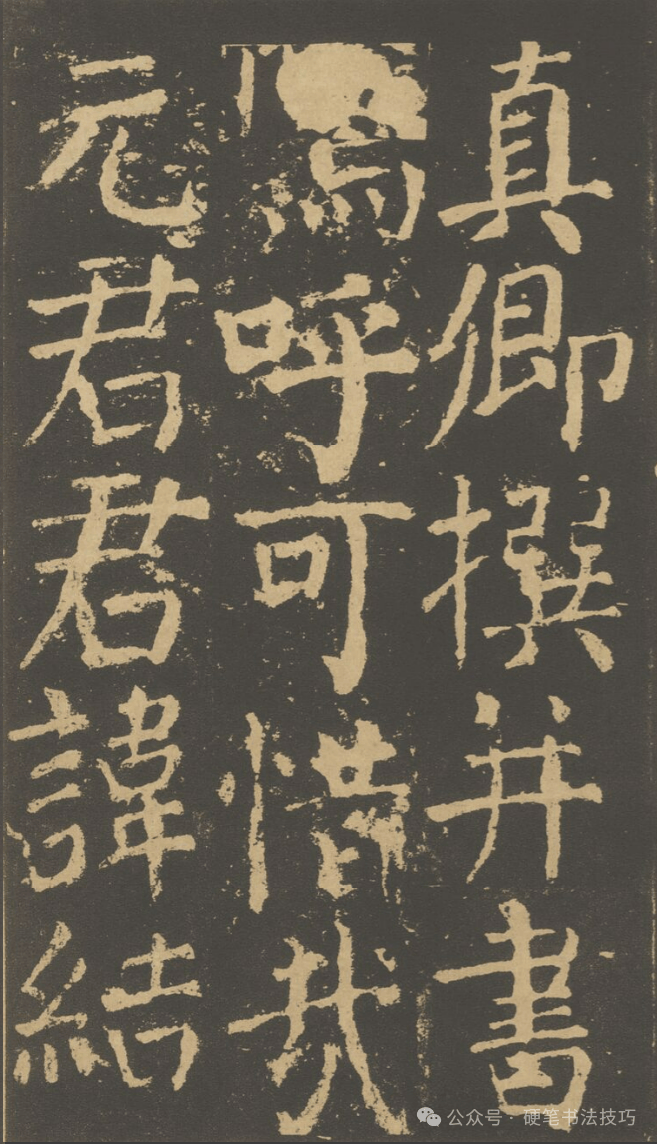 真卿撰并書
嗚呼可惜哉
元君君諱結
公众号 · 硬笔书法技巧